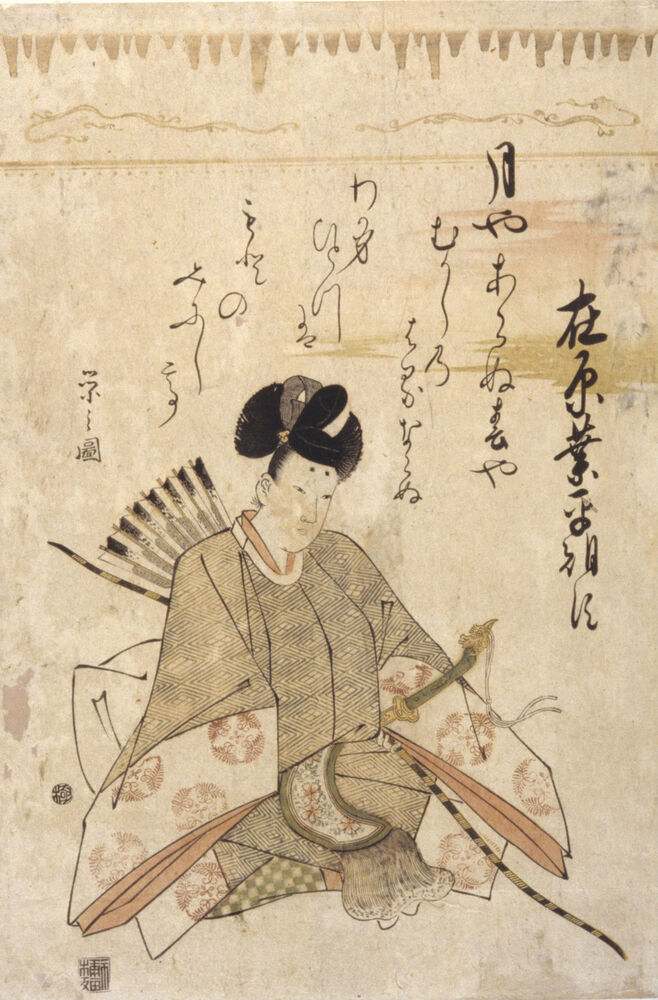 在原業平朝臣
月やあらぬ春や
むかしの
はるならぬ
わか身
ひとつは
もとの
みにし
て
栄之圖
極